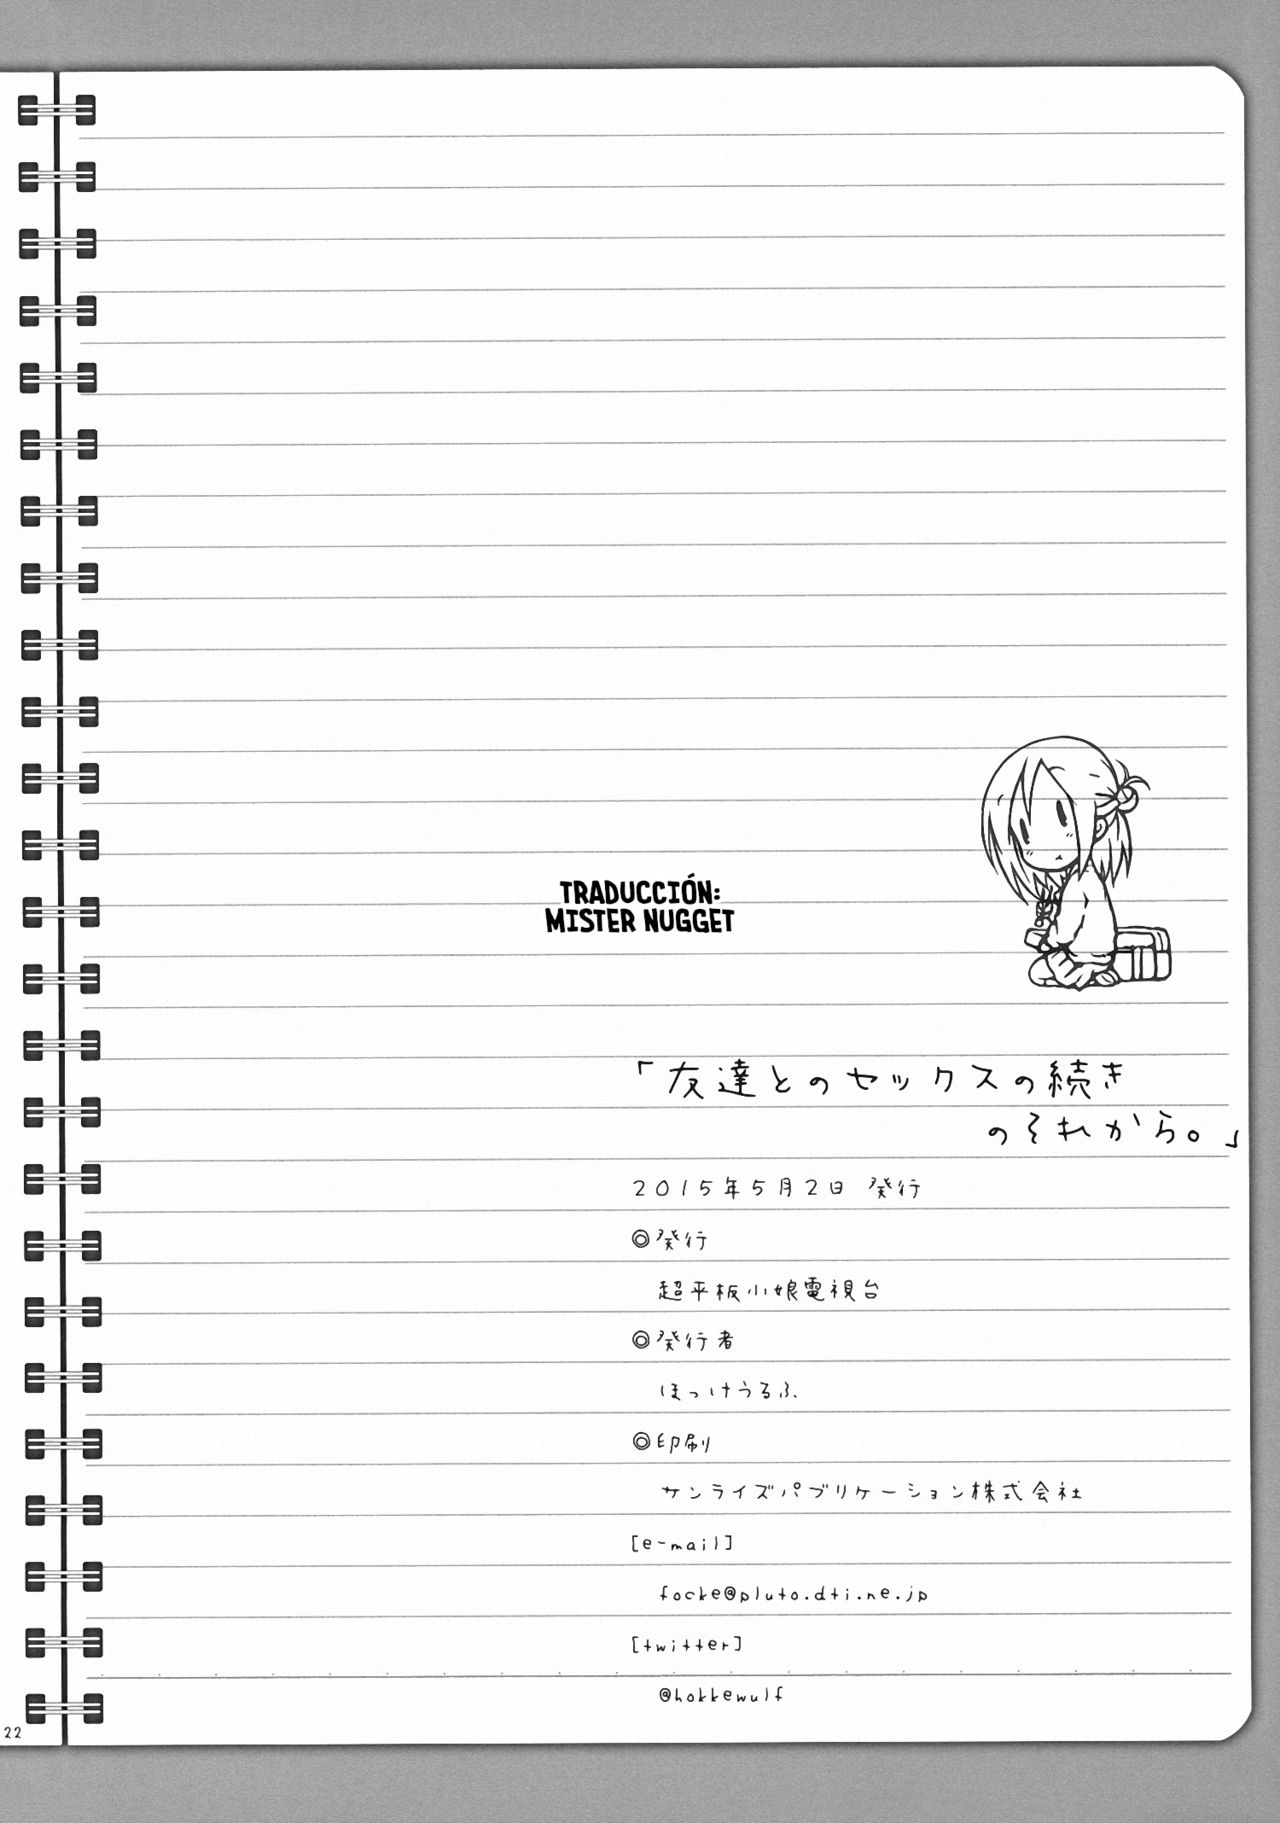 TRADUCCIÓN:
MISTER NUGGET
「友達とのセックスの続き
のそれから。」
2015年5月2日 発行
◎発行
超平板小娘電視台
◎発行者
ほっけうるふ
◎印刷
サンライズパブリケーション株式会社
[e-mail]
focke@pluto.dti.ne.jp
[twitter]
@hokkewulf
22